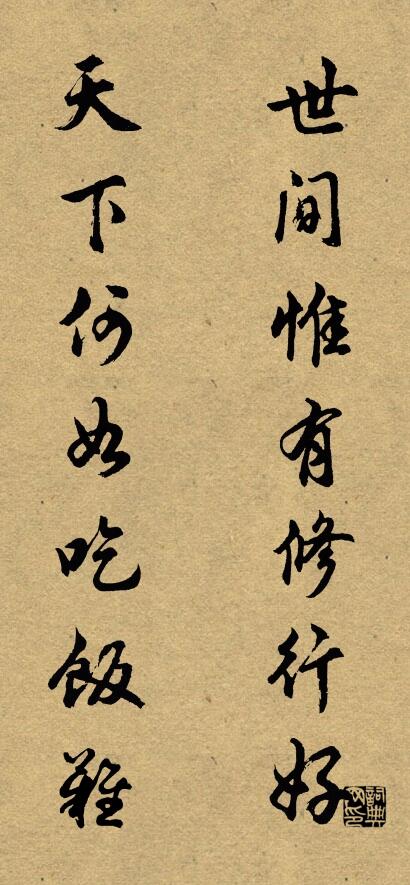 世间惟有修行好
天下何如吃饭难